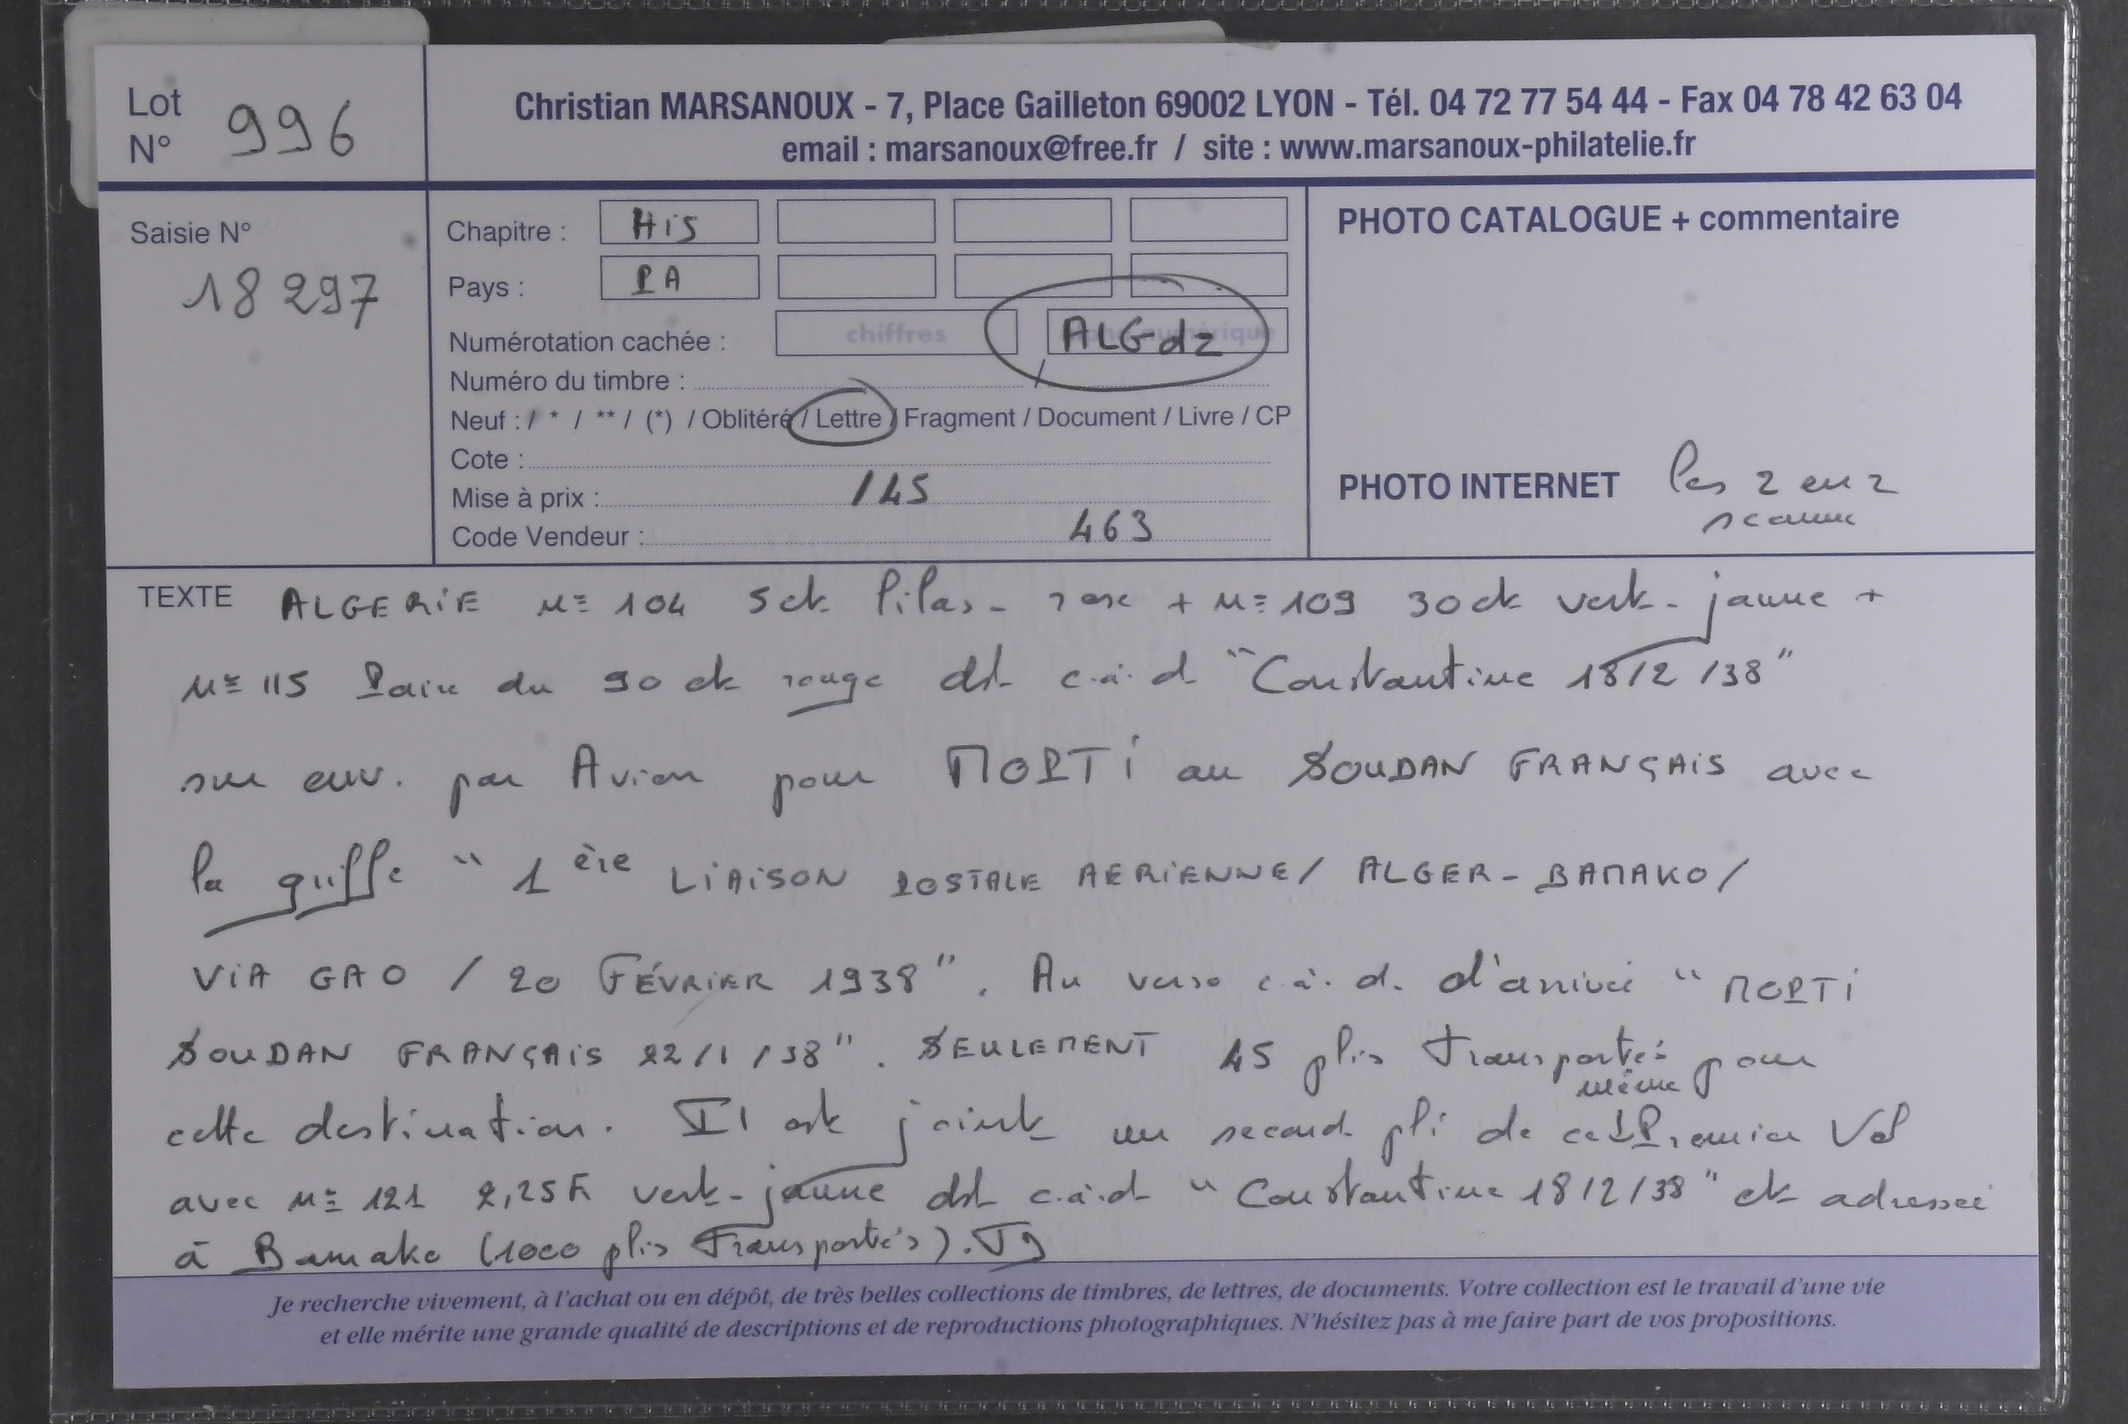 Lot
N° 996
Christian MARSANOUX - 7, Place Gailleton 69002 LYON - Tél. 04 72 77 54 44 - Fax 04 78 42 63 04
email : marsanoux@free.fr / site : www.marsanoux-philatelie.fr
Saisie N°
18 297
Chapitre : HiS
Pays : PA
Numérotation cachée : chiffres ALGdz
Numéro du timbre : /
Neuf : / * / ** / (*) / Oblitéré / Lettre / Fragment / Document / Livre / CP
Cote :
Mise à prix : 145
Code Vendeur : 463
PHOTO CATALOGUE + commentaire
PHOTO INTERNET les 2 en 2
scanne
TEXTE ALGERIE N= 104 5ct lilas-rose + N= 109 30ct vert-jaune +
N= 115 Paire du 90 ct rouge dt c.à.d "Constantine 18/2/38"
sur env. par Avion pour MOPTi au SOUDAN FRANÇAIS avec
la griffe "1ère LIAISON POSTALE AERIENNE/ ALGER-BAMAKO/
ViA GAO / 20 FÉVRIER 1938". Au verso c.à.d. d'arrivée "MOPTi
SOUDAN FRANÇAIS 22/1/38". SEULEMENT 45 plis Transportés pour
cette destination. Il est joint un second pli de ce même Premier Vol
avec N= 121 2,25F vert-jaune dt c.à.d "Constantine 18/2/38" et adressé
à Bamako (1000 plis Transportés).
Je recherche vivement, à l'achat ou en dépôt, de très belles collections de timbres, de lettres, de documents. Votre collection est le travail d'une vie
et elle mérite une grande qualité de descriptions et de reproductions photographiques. N'hésitez pas à me faire part de vos propositions.